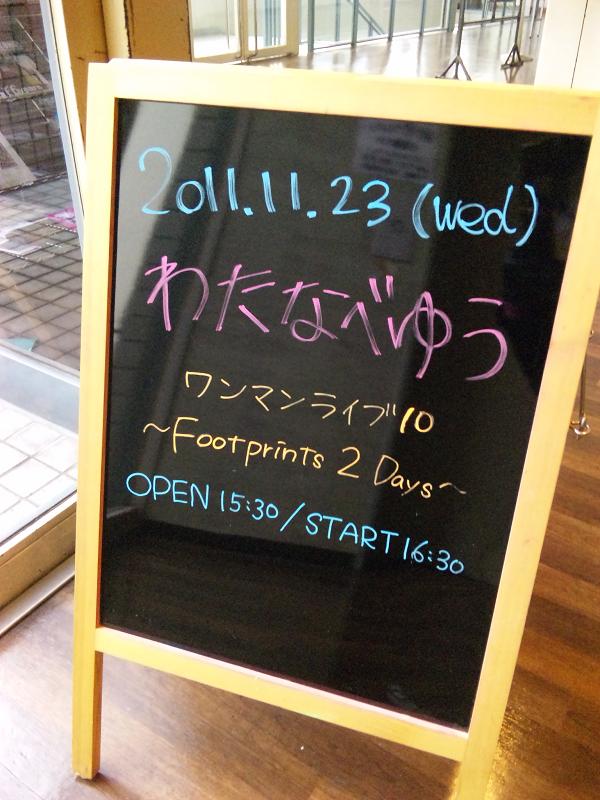 2011.11.23 (wed)
わたなべゆう
ワンマンライブ10
～Footprints 2 Days～
OPEN 15:30 / START 16:30